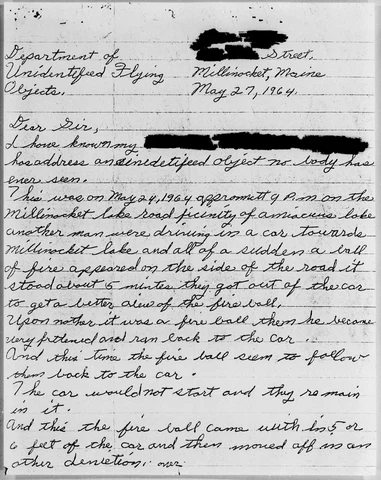 Department of Street.
Unidentified Flying Millinocket, Maine
Objects. May 27, 1964.
Dear Sir,
I have known my
has address an unidetifeed object no body has
ever seen.
This was on May 24, 1964 appromett 9 P.m on the
Millinocket lake road ficinity of lake
another man were driving in a car towards
Millinocket lake and all of a sudden a ball
of fire appeared on the side of the road it
stood about 5 mintes, they got out of the car
to get a better view of the fire ball.
Upon nother it was a fire ball them he became
very frttenid and ran back to the car.
And this time the fire ball seem to follow
them back to the car.
The car would not start and they remain
in it.
And this the fire ball came with in 5 or
6 feet of the car and then moved off in an
other deriction. over